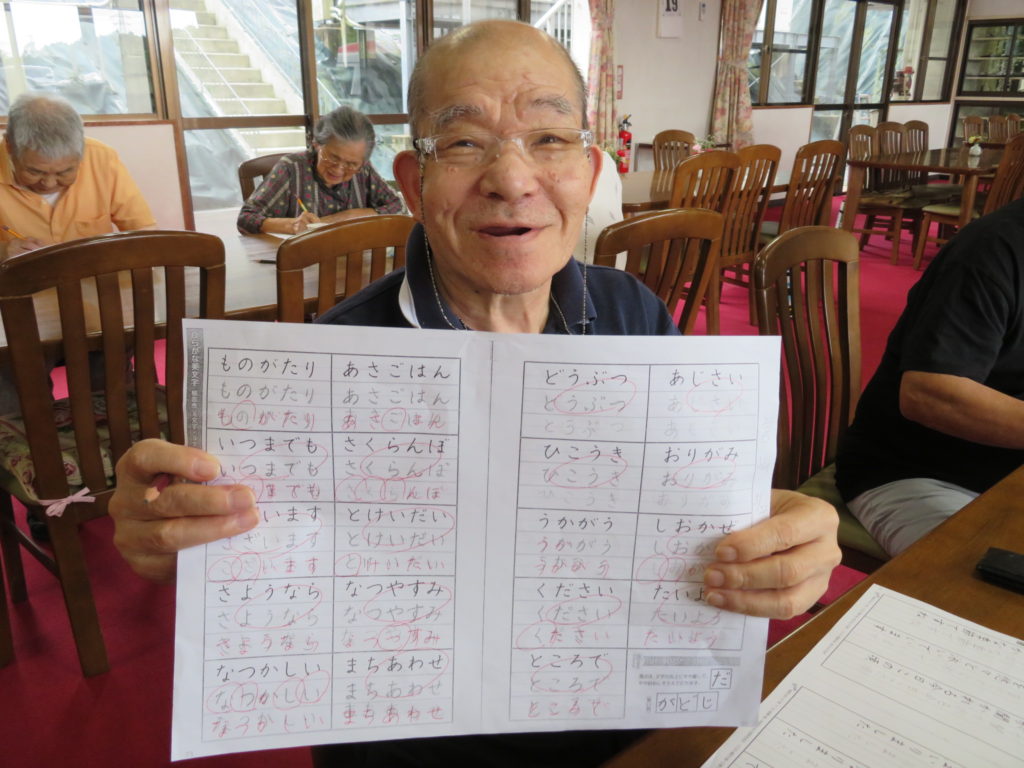 19
ものがたり
ものがたり
ものがたり
いつまでも
いつまでも
までも
います
ざいます
ございます
さようなら
さようなら
さようなら
なつかしい
なつかしい
なつかしい
あさごはん
あさごはん
あさごはん
さくらんぼ
さくらんぼ
さくらんぼ
とけいだい
とけいだい
とけいだい
なつやすみ
なつやすみ
なつやすみ
まちあわせ
まちあわせ
まちあわせ
どうぶつ
どうぶつ
どうぶつ
ひこうき
ひこうき
ひこうき
うかがう
うかがう
うかがう
ください
ください
ください
ところで
ところで
ところで
あじさい
あじさい
あじさい
おりがみ
おりがみ
おりがみ
しおかぜ
しおか
しのか
たいよ
たいよう
たいよう
だ
がとじ